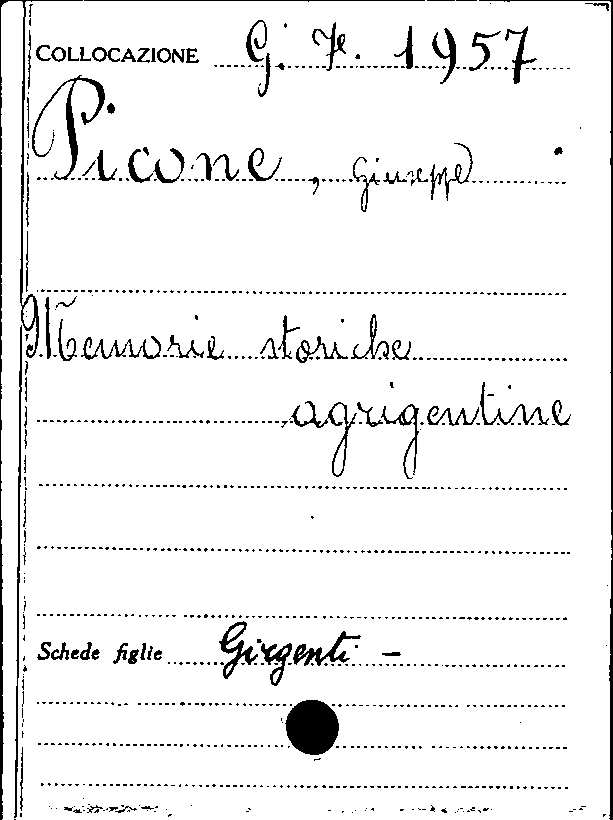 COLLOCAZIONE G. F. 1957
Picone, Giuseppe
Memorie storiche
agrigentine
Schede figlie Girgenti -